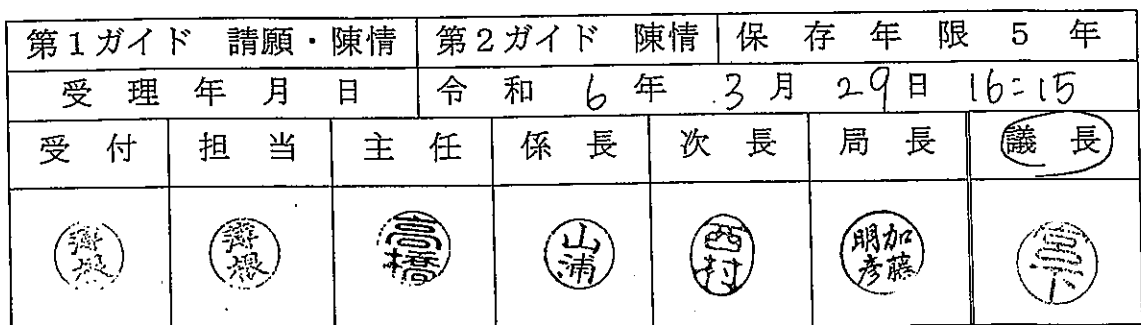 第1ガイド 請願・陳情 第2ガイド 陳情 保存年限 5年
受理年月日 令和6年3月29日 16:15
受付 担当 主任 係長 次長 局長 議長
高橋 山浦 西村 加藤明彦 宮下